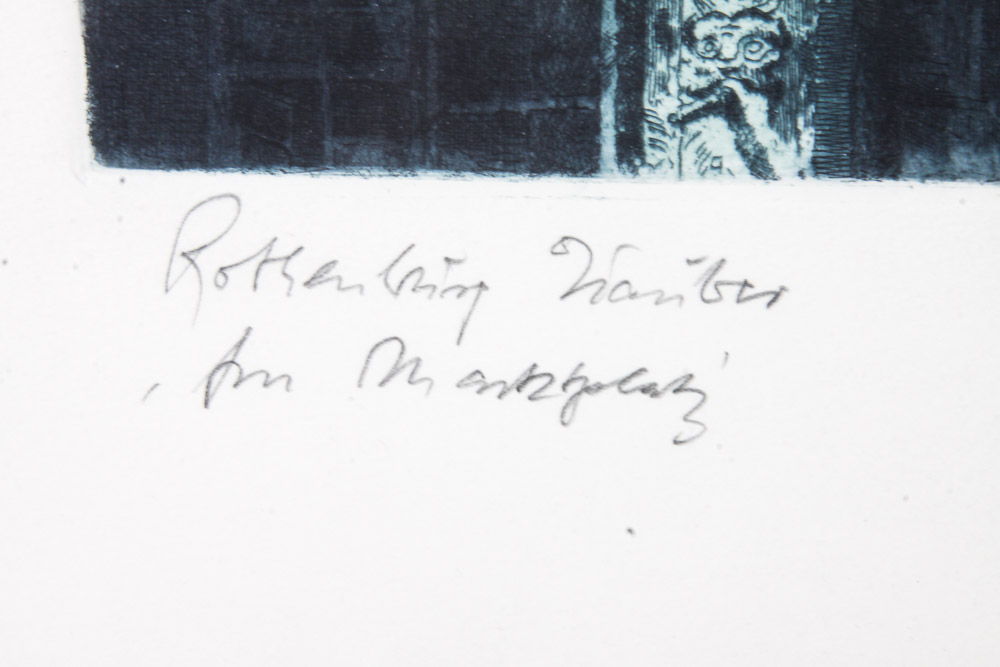 Rothenburg Tauber
"Am Marktplatz"